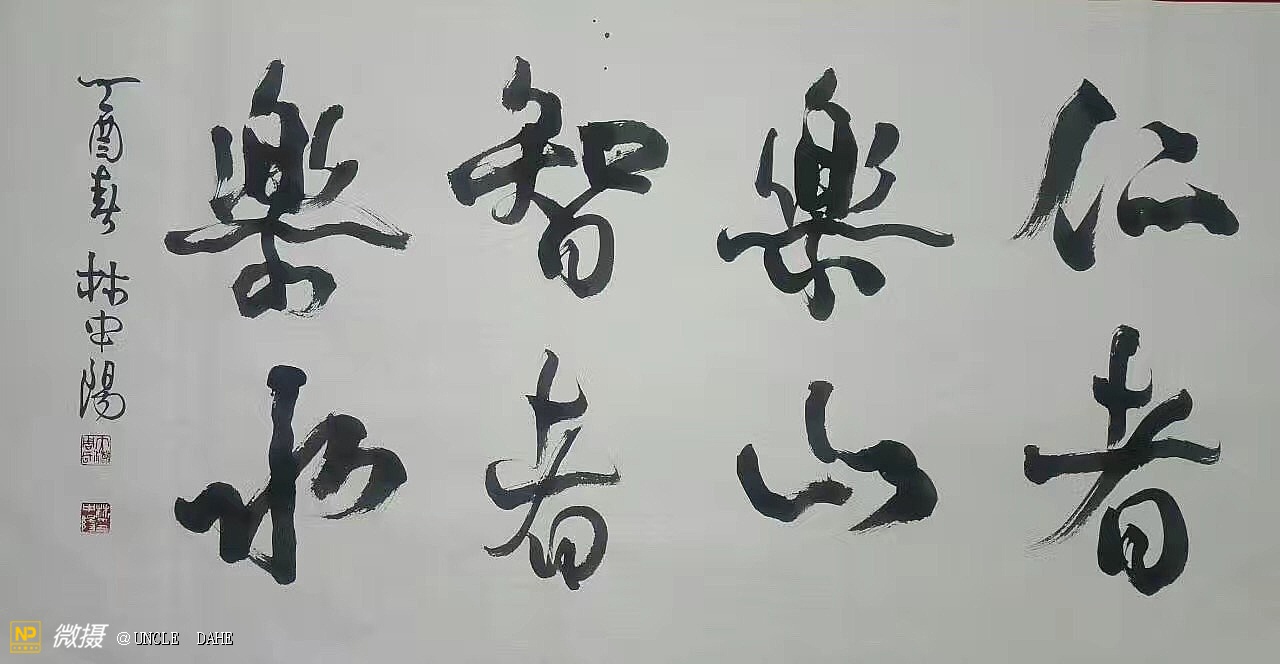 仁者
樂山
智者
樂水
丁酉春 林中陽
NP 微摄 @UNCLE DAHE